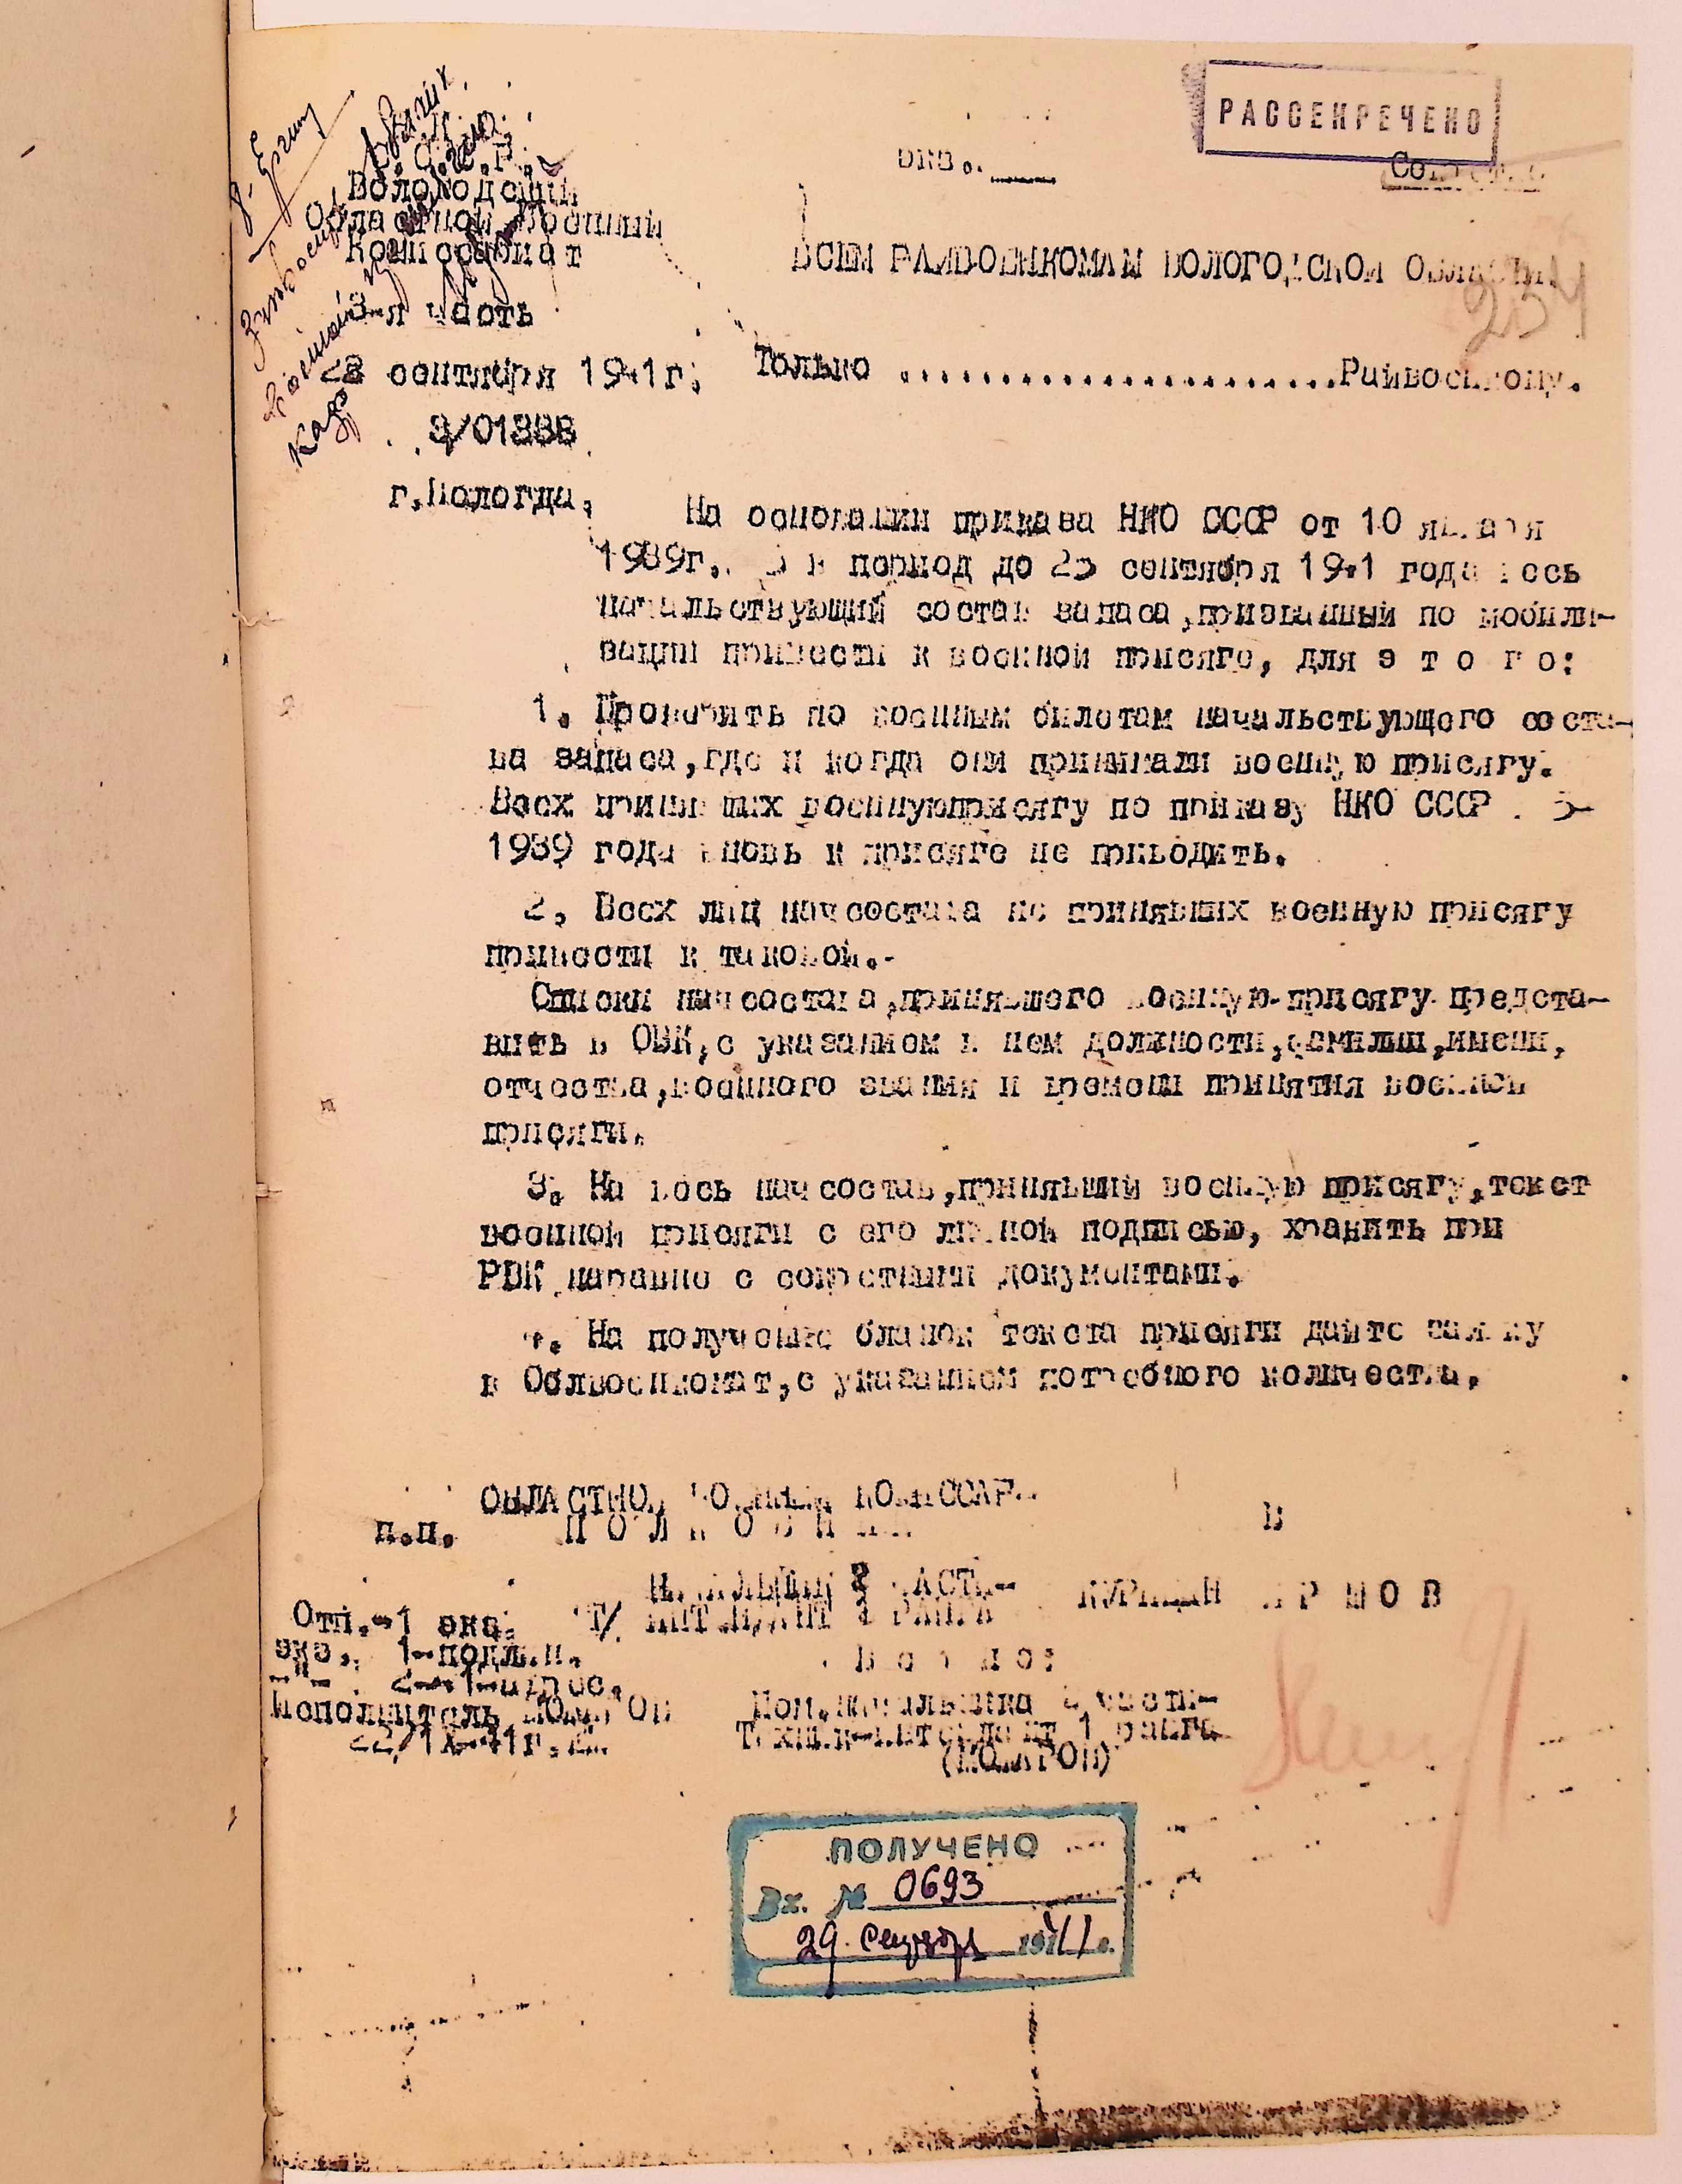 РАССЕКРЕЧЕНО
Секретно
экз.
С.С.С.Р.
Вологодский
Областной Военный
Комиссариат
ВСЕМ РАЙВОЕНКОМАМ ВОЛОГОДСКОЙ ОБЛАСТИ.
234
3-я часть
сентября 1941г.
Только ........................Райвоенкому.
г.Вологда.
На основании приказа НКО СССР от 10 января
1939г. в период до 25 сентября 1941 года весь
начальствующий состав запаса,призванный по мобили-
зации привести к военной присяге, для э т о г о:
1. Проверить по военным билетам начальствующего соста-
ва запаса,где и когда они принимали военную присягу.
Всех принявших военнуюприсягу по приказу НКО СССР
1939 года вновь к присяге не приводить.
2. Всех лиц начсостава не принявших военную присягу
привести к таковой.-
Списки начсостава,принявшего военную-присягу предста-
вить в ОВК,с указанием в нем должности,фамилии,имени,
отчества,военного звания и времени принятия военной
присяги.
3. На весь начсостав,принявший военную присягу,текст
военной присяги с его личной подписью, хранить при
РВК наравне с секретными документами.
4. На получение бланок текста присяги дайте заявку
в Облвоенкомат,с указанием потребного количества.
ОБЛАСТНОЙ ВОЕННЫЙ КОМИССАР-
п.п. П О Л К О В Н И К
НАЧАЛЬНИК 3 ЧАСТИ-
Т/ ИНТЕНДАНТ 1 РАНГА
Отп.-1 экз.
экз. 1-подлин.
Исполнитель
22/IX-41г.
В е р н о:
Пом.начальника части-
Техник-интендант 1 ранга
ПОЛУЧЕНО
Вх. № 0693
29 сентября 1941 г.